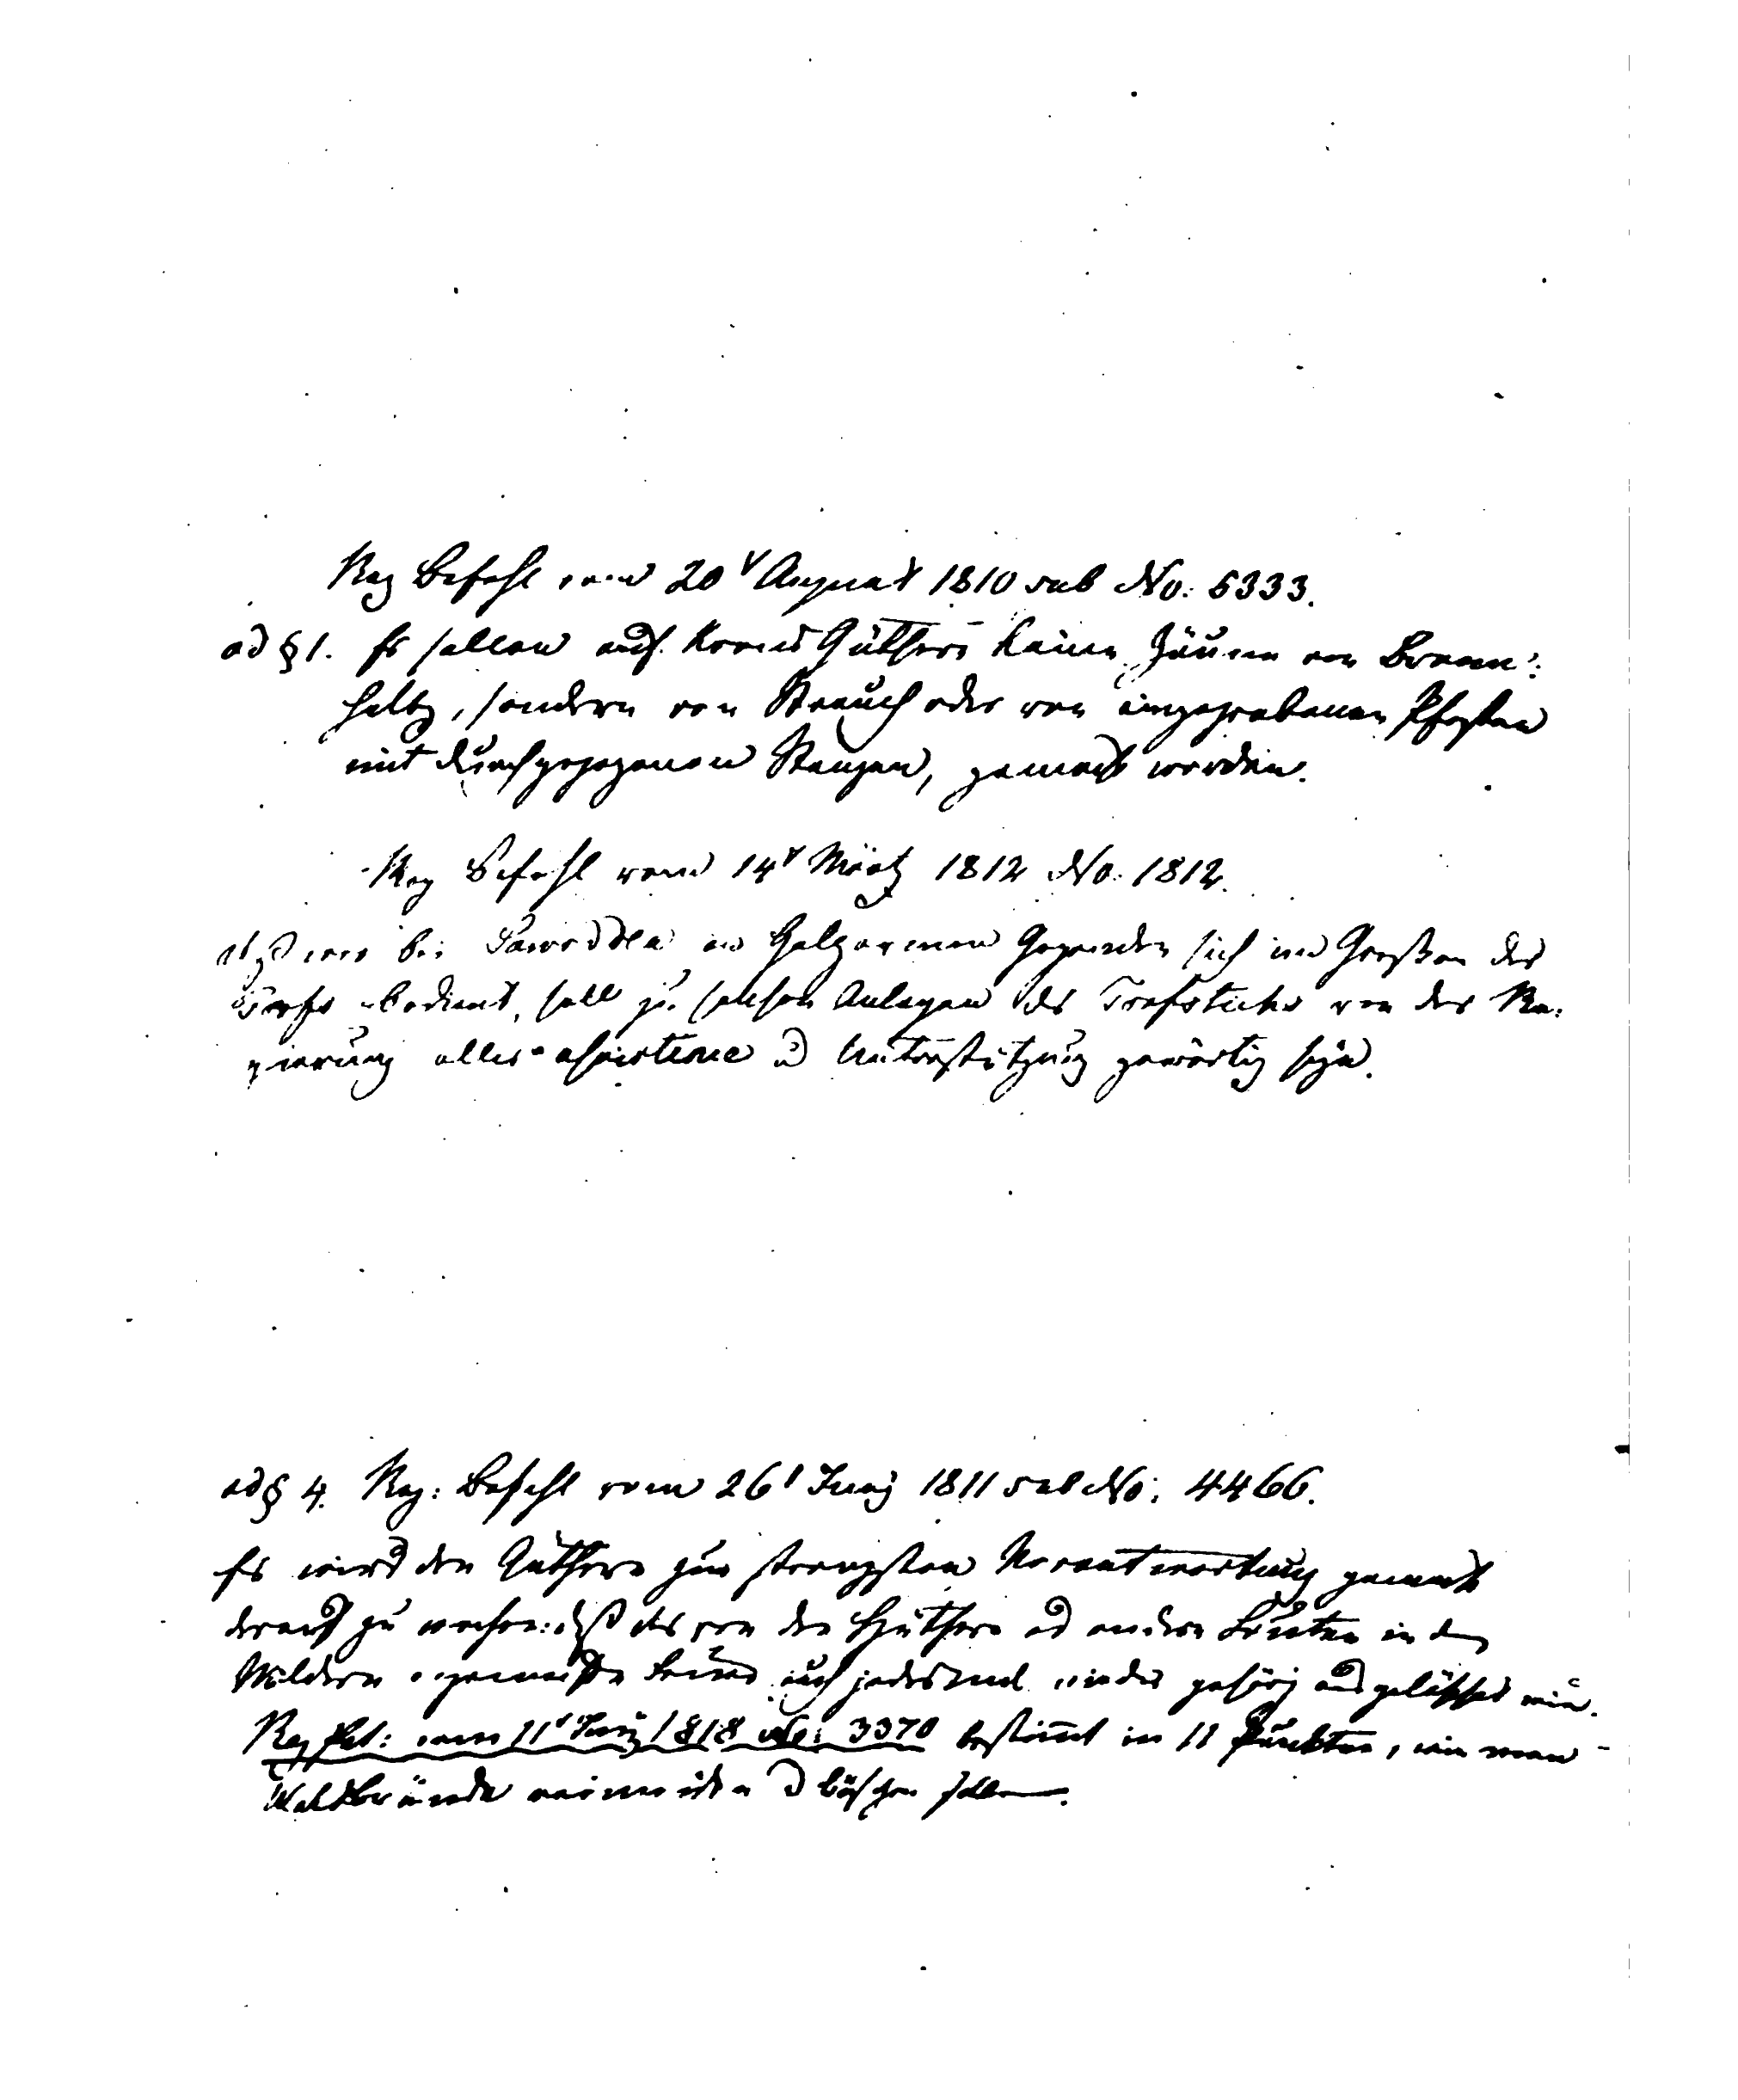 Reg Befehl vom 20t August 1810 sub No: 5333.
ad § 1. Es sollen auf Krons Güthern keine Zäune von Brenn:
holtz, sondern von Strauch oder von eingegrabenen Pfosten
mit durchgezogenen Stangen, gemacht werden.
Reg Befehl vom 14t Märtz 1812 No. 1812.
wer bei in Holzarmen Gegenden sich im Grossen des
Torfs bedient, soll zu solchen Anlagen des Torfstichs von der Re:
gierung aller assistence u Unterstützung gewärtig seyn.
ad § 4. Reg: Befehl vom 26t Juny 1811 sub No: 4466.
Es wird den Güthern zur strengsten Verantwortung gemacht
darauf zu wachen: daß das von den Hüthern od andern Leuten in den
Wäldern gemachte Feuer auch jedesmal wieder gehörig ausgelöschet wird.
Reg Pat: vom 11t Juny 1818 No: 3370 bestimt in 11 Punkten, wie man
Waldbrände vermeiden u löschen soll.